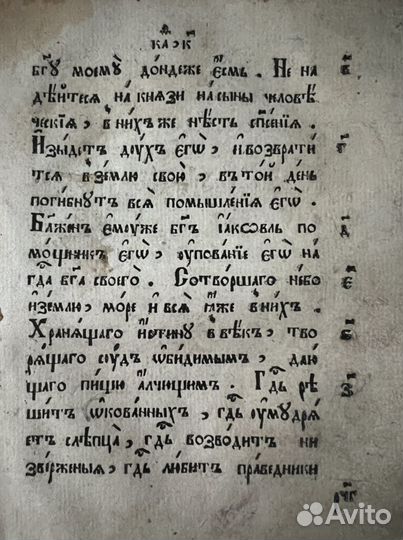 КАѲК҃
бг҃ꙋ моемꙋ̀ до́ндеже є҆́смь . Не на
дѣ́йтеся на кня́зи на сы́ны человѣ́
ческїя , в ни́хъ же нѣ́сть сп҃се́нїя .
И҆зы́детъ дꙋ́хъ є҆гѡ̀ , и҆ возврати́
тся в зе́млю свою̀ , в то́й де́нь
поги́бнꙋтъ вся̀ помышле́нїя є҆гѡ̀ .
Бл҃же́нъ є҆мꙋ́же бг҃ъ і҆а́кѡвль по
мо́щникъ є҆гѡ̀ , ᲂу҆пова́нїе є҆гѡ̀ на
гд҃а бг҃а своего̀ . Сотво́ршаго не́бо
и҆ зе́млю , мо́ре и҆ вся̀ ꙗ҆́же в ни́хъ .
Храня́щаго и҆́стинꙋ в вѣ́къ , тво
ря́щаго сꙋ́дъ ѡ҆би́димымъ , даю́
щаго пи́щꙋ а҆́лчꙋщимъ . Гд҃ь рѣ
ши́тъ ѡ҆кова́нныхъ , гд҃ь ᲂу҆мꙋдря́
етъ слѣпца̀ , гд҃ь возво́дитъ ни
зве́рженыя , гд҃ь лю́битъ пра́ведники
в҃
г҃
д҃
є҃
ѕ҃
з҃
Avito